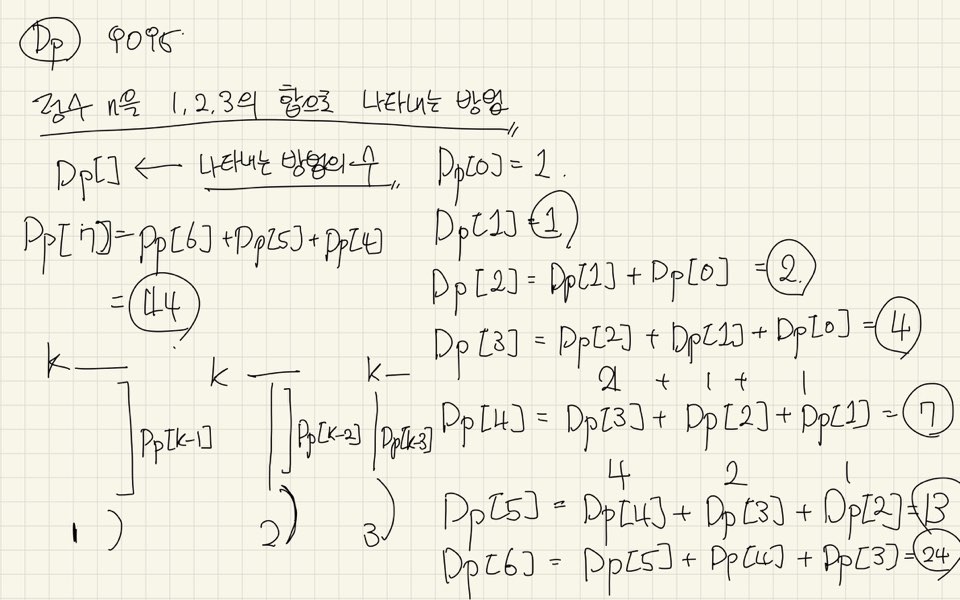 Dp 9095
정수 n을 1, 2, 3의 합으로 나타내는 방법
Dp[] ← 나타내는 방법의 수
Dp[7] = Dp[6] + Dp[5] + Dp[4]
= 44
k
Dp[k-1]
1)
k
Dp[k-2]
2)
k
Dp[k-3]
3)
Dp[0] = 1.
Dp[1] = 1
Dp[2] = Dp[1] + Dp[0] = 2.
Dp[3] = Dp[2] + Dp[1] + Dp[0] = 4
2 + 1 + 1
Dp[4] = Dp[3] + Dp[2] + Dp[1] = 7
4 2 1
Dp[5] = Dp[4] + Dp[3] + Dp[2] = 13
Dp[6] = Dp[5] + Dp[4] + Dp[3] = 24